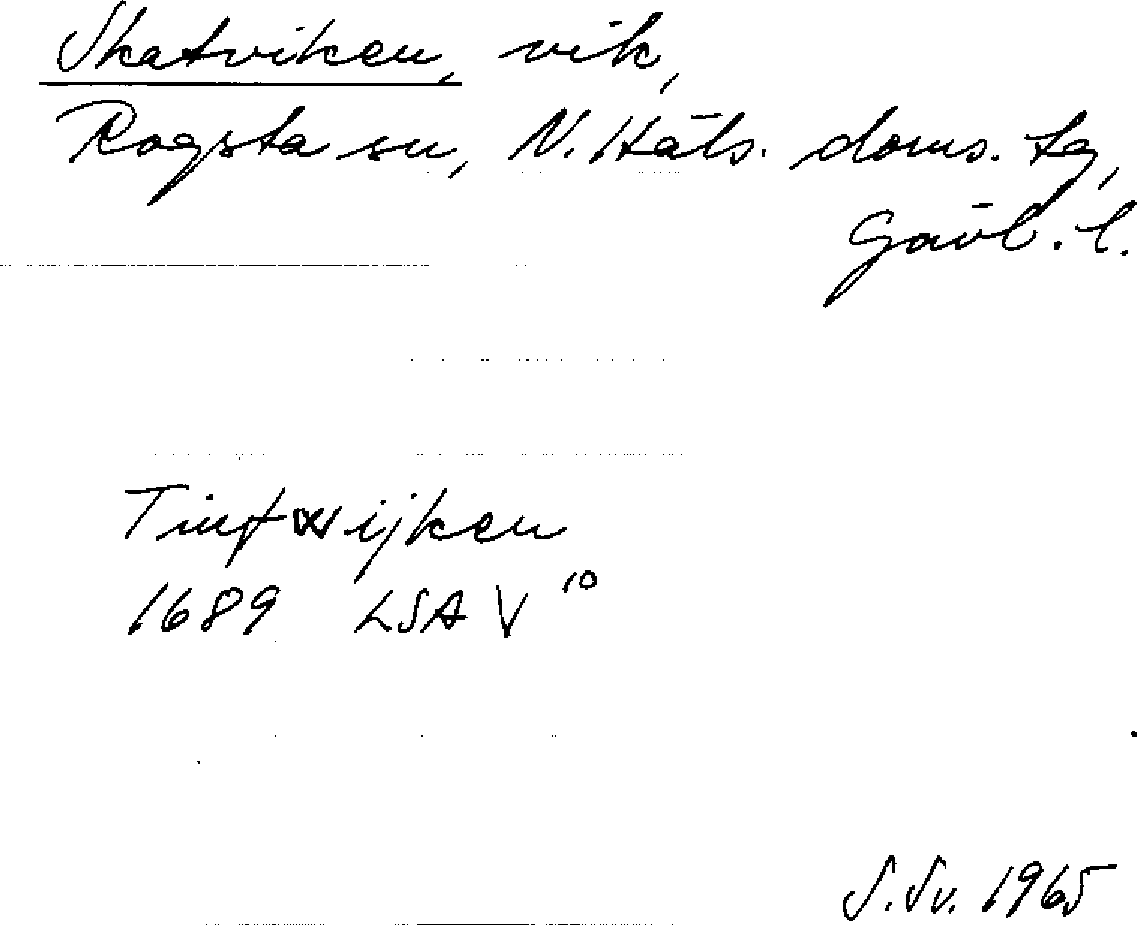 Skatviken, vik,
Rogsta sn, N. Häls. doms. tg,
Gävl. l.
Tiufwijken
1689 LSA V 10
S. Sv. 1965